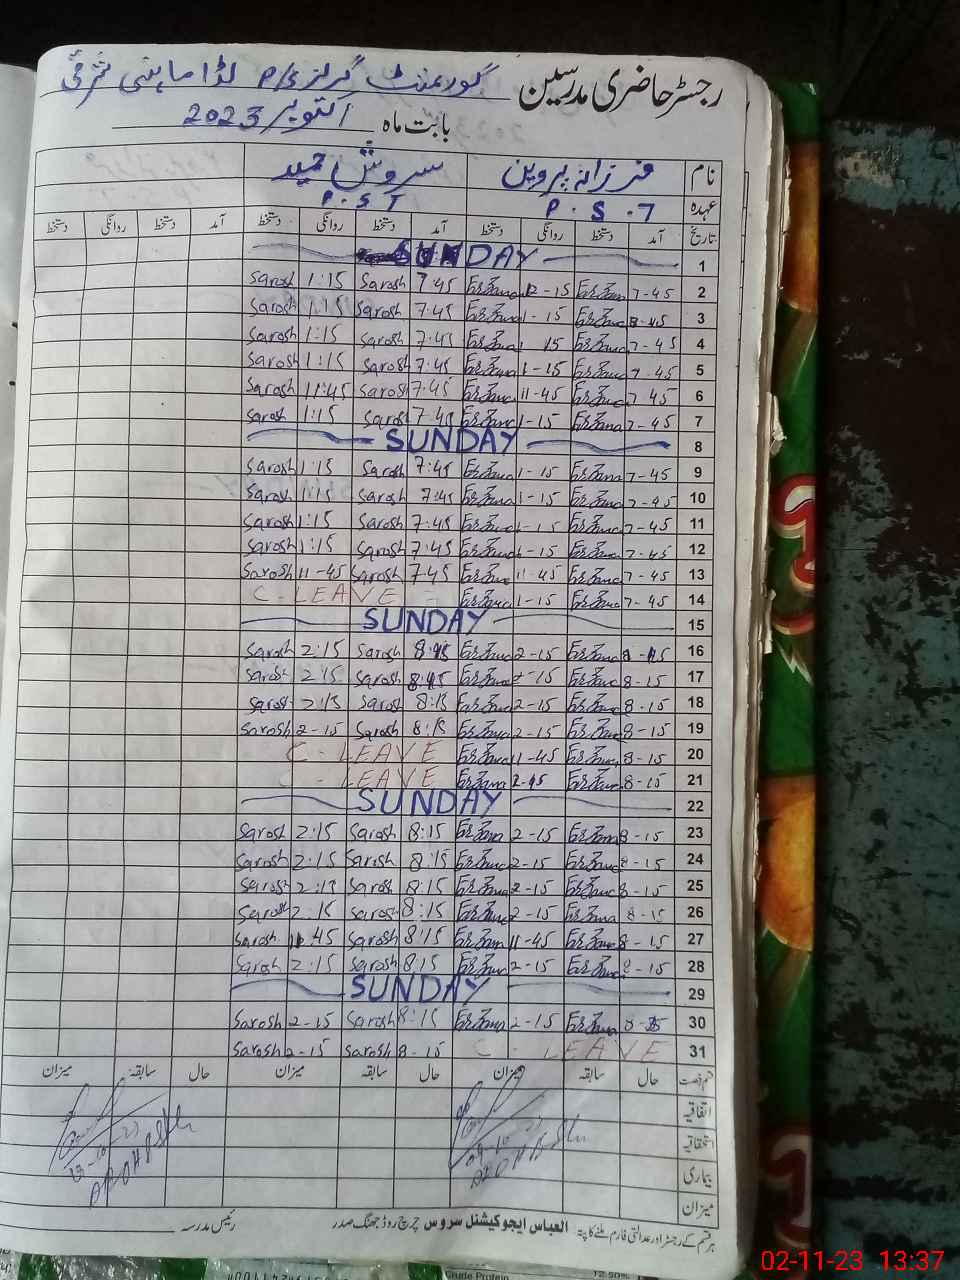 رجسٹر حاضری مدرسین گورنمنٹ گرلز P/S لڈا ماہنی شرقی
بابت ماہ اکتوبر 2023
نام فرزانہ پروین سروش حمید
عہدہ P.S.T P.S.T
تاریخ آمد دستخط روانگی دستخط آمد دستخط روانگی دستخط آمد دستخط روانگی دستخط
1 SUNDAY
2 7-45 Farzana 12-15 Farzana 7:45 Sarosh 1:15 Sarosh
3 Farzana 1-15 Farzana 7:45 Sarosh 1:15 Sarosh
4 7-45 Farzana 1-15 Farzana 7:45 Sarosh 1:15 Sarosh
5 7-45 Farzana 1-15 Farzana 7:45 Sarosh 1:15 Sarosh
6 7-45 Farzana 11-45 Farzana 7:45 Sarosh 11:45 Sarosh
7 7-45 Farzana 1-15 Farzana 7:45 Sarosh 1:15 Sarosh
8 SUNDAY
9 7-45 Farzana 1-15 Farzana 7:45 Sarosh 1:15 Sarosh
10 7-45 Farzana 1-15 Farzana 7:45 Sarosh 1:15 Sarosh
11 7-45 Farzana 1-15 Farzana 7:45 Sarosh 1:15 Sarosh
12 7-45 Farzana 1-15 Farzana 7:45 Sarosh 1:15 Sarosh
13 7-45 Farzana 11-45 Farzana 7:45 Sarosh 11-45 Sarosh
14 7-45 Farzana 1-15 Farzana C-LEAVE
15 SUNDAY
16 8-15 Farzana 2-15 Farzana 8:15 Sarosh 2:15 Sarosh
17 8-15 Farzana 2-15 Farzana 8:15 Sarosh 2:15 Sarosh
18 8-15 Farzana 2-15 Farzana 8:15 Sarosh 2:15 Sarosh
19 8-15 Farzana 2-15 Farzana 8:15 Sarosh 2-15 Sarosh
20 8-15 Farzana 11-45 Farzana C-LEAVE
21 8-15 Farzana Farzana C-LEAVE
22 SUNDAY
23 8-15 Farzana 2-15 Farzana 8:15 Sarosh 2:15 Sarosh
24 8-15 Farzana 2-15 Farzana 8:15 Sarosh 2:15 Sarosh
25 8-15 Farzana 2-15 Farzana 8:15 Sarosh 2:15 Sarosh
26 8-15 Farzana 2-15 Farzana 8:15 Sarosh 2:15 Sarosh
27 8-15 Farzana 11-45 Farzana 8:15 Sarosh 11.45 Sarosh
28 8-15 Farzana 2-15 Farzana 8:15 Sarosh 2:15 Sarosh
29 SUNDAY
30 Farzana 2-15 Farzana 8:15 Sarosh 2-15 Sarosh
31 C-LEAVE 8-15 Sarosh 2-15 Sarosh
قسم رخصت حال سابقہ میزان حال سابقہ میزان حال سابقہ میزان
اتفاقیہ
استحقاقیہ
بیماری
میزان
ہر قسم کے رجسٹر اور عدالتی فارم ملنے کا پتہ: العباس ایجوکیشنل سروس چرچ روڈ جھنگ صدر رئیس مدرسہ
Crude Protein
02-11-23 13:37